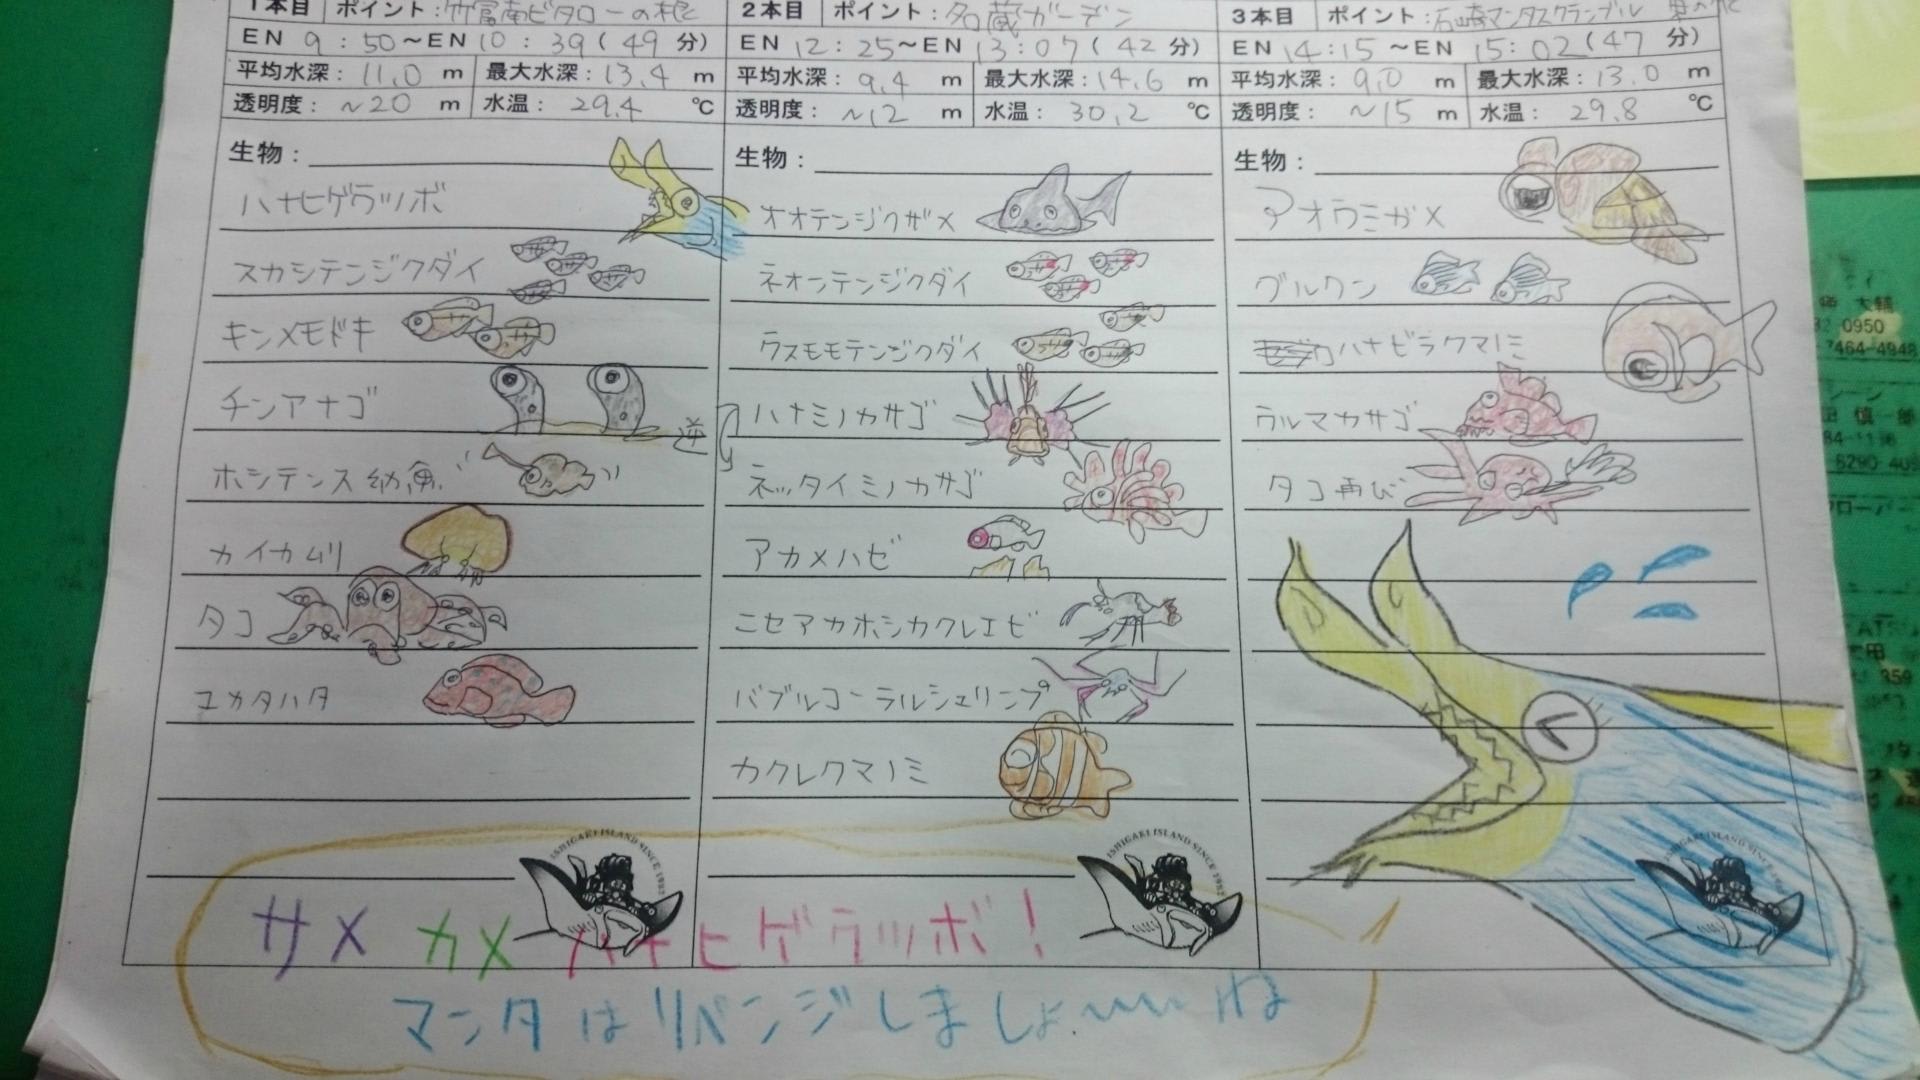 1本目 ポイント:竹富南ビタローの根
EN 9:50~EN 10:39(49分)
平均水深:11.0 m 最大水深:13.4 m
透明度:~20 m 水温:29.4 ℃
生物:
ハナヒゲウツボ
スカシテンジクダイ
キンメモドキ
チンアナゴ
逆
ホシテンス幼魚
カイカムリ
タコ
ユカタハタ
2本目 ポイント:名蔵ガーデン
EN 12:25~EN 13:07(42分)
平均水深:9.4 m 最大水深:14.6 m
透明度:~12 m 水温:30.2 ℃
生物:
オオテンジクザメ
ネオンテンジクダイ
ウスモモテンジクダイ
ハナミノカサゴ
ネッタイミノカサゴ
アカメハゼ
ニセアカホシカクレエビ
バブルコーラルシュリンプ
カクレクマノミ
3本目 ポイント:石崎マンタスクランブル
EN 14:15~EN 15:02(47分)
平均水深:9.0 m 最大水深:13.0 m
透明度:~15 m 水温:29.8 ℃
生物:
アオウミガメ
グルクン
ハナビラクマノミ
ウルマカサゴ
タコ再び
ISHIGAKI ISLAND SINCE 1982
ISHIGAKI ISLAND SINCE 1982
ISHIGAKI ISLAND SINCE 1982
サメ カメ ハナヒゲウツボ!
マンタはリベンジしましょ〜〜〜ね